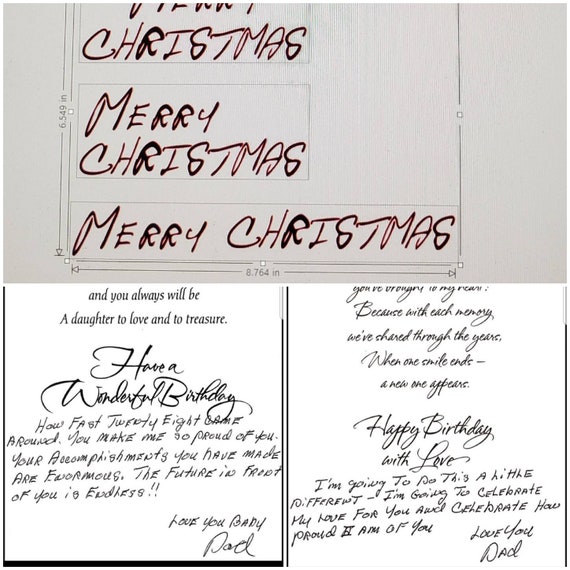 MERRY
CHRISTMAS
MERRY
CHRISTMAS
MERRY CHRISTMAS
6.549 in
8.764 in
and you always will be
A daughter to love and to treasure.
Have a
Wonderful Birthday
HOW FAST TWENTY EIGHT CAME
AROUND. YOU MAKE ME SO PROUD OF YOU.
YOUR ACCOMPLISHMENTS YOU HAVE MADE
ARE ENORMOUS. THE FUTURE IN FRONT
OF YOU IS ENDLESS!!
LOVE YOU BABY
Dad
you've brought to my heart!
Because with each memory
we've shared through the years,
When one smile ends –
a new one appears.
Happy Birthday
with Love
I'M GOING TO DO THIS A LITTLE
DIFFERENT - I'M GOING TO CELEBRATE
MY LOVE FOR YOU AND CELEBRATE HOW
PROUD I AM OF YOU
LOVE YOU
DAD